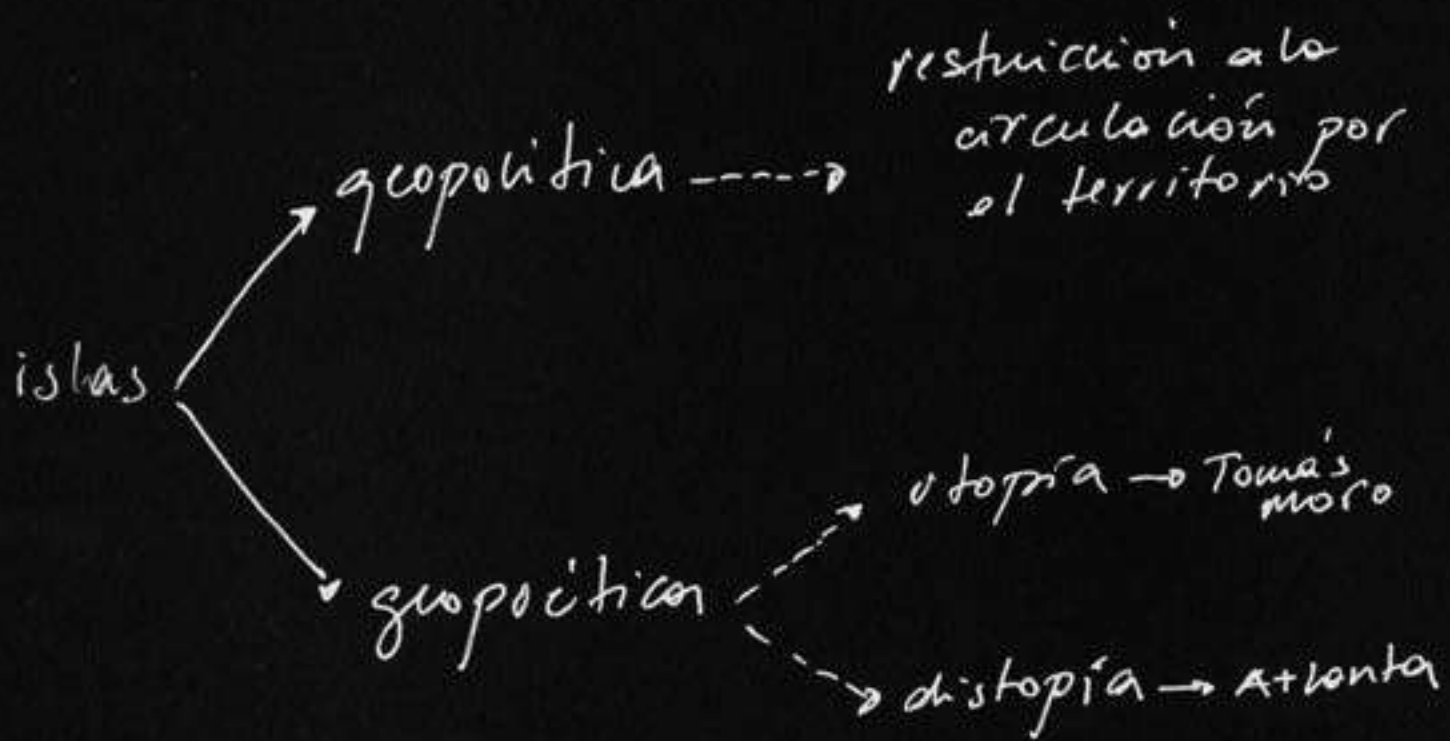 islas
geopolítica
restricción a la
circulación por
el territorio
geopoética
utopía → Tomás
Moro
distopía → Atlanta